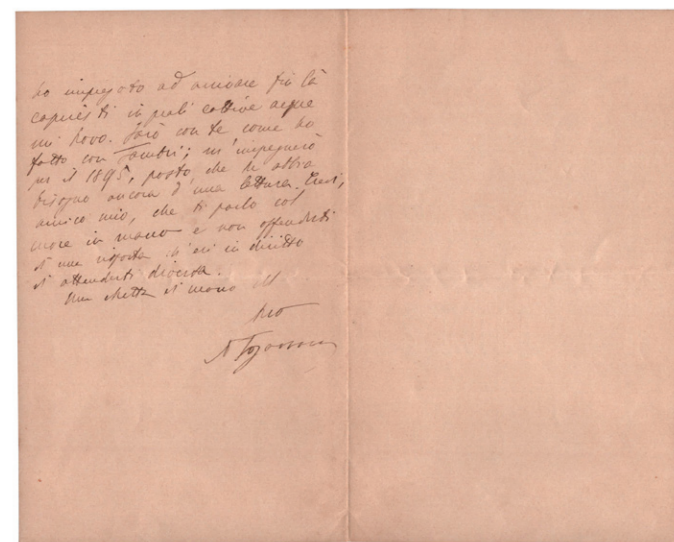 ho impiegato ad arrivare fin là
capiresti in quali cattive acque
mi trovo. Farò con te come ho
fatto con Fambri; m'impegnerò
per il 1895, posto che tu abbia
bisogno ancora d'una lettura. Credi,
amico mio, che ti parlo col
cuore in mano e non offenderti
d'una risposta ch'eri in diritto
d'attenderti diversa.
Una stretta di mano dal
tuo
A Fogazzaro